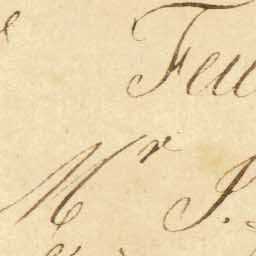 Feu
Mr J.